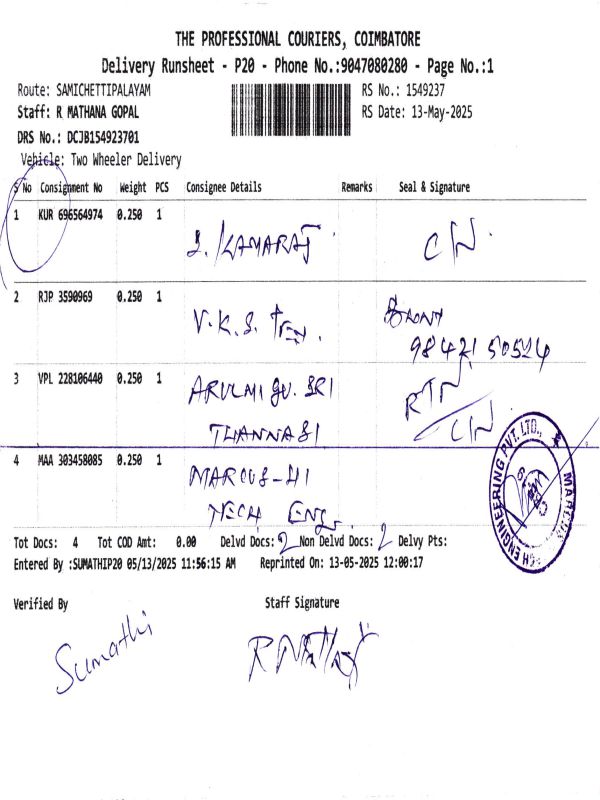 THE PROFESSIONAL COURIERS, COIMBATORE
Delivery Runsheet - P20 - Phone No.:9047080280 - Page No.:1
Route: SAMICHETTIPALAYAM
RS No.: 1549237
Staff: R MATHANA GOPAL
RS Date: 13-May-2025
DRS No.: DCJB154923701
Vehicle: Two Wheeler Delivery
S No Consignment No Weight PCS Consignee Details Remarks Seal & Signature
1 KUR 696564974 0.250 1
KAMARAJ
2 RJP 3590969 0.250 1
V.K.S. Tex.
98421 50524
3 VPL 228106440 0.250 1
ARULMIGU. SRI
THANNASI
4 MAA 303458085 0.250 1
MAROUS-HI
TECH ENG.
ENGINEERING PVT. LTD.,
Tot Docs: 4 Tot COD Amt: 0.00 Delvd Docs: 2 Non Delvd Docs: 2 Delvy Pts:
Entered By :SUMATHIP20 05/13/2025 11:56:15 AM Reprinted On: 13-05-2025 12:00:17
Verified By Staff Signature
Sumathi